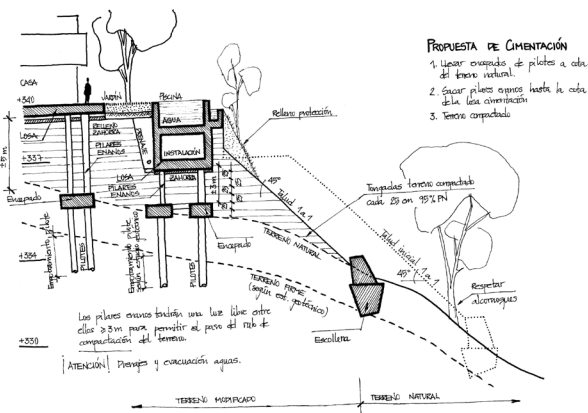 PROPUESTA DE CIMENTACIÓN
1. Llevar encepados de pilotes a cota
del terreno natural.
2. Sacar pilares enanos hasta la cota
de la losa cimentación
3. Terreno compactado
CASA
+340
JARDÍN
PISCINA
AGUA
Relleno protección
LOSA
RELLENO
ZAHORRA
PILARES
ENANOS
DRENAJE
INSTALACIÓN
+337
±5 m
LOSA
ZAHORRA
PILARES
ENANOS
±3 m
25
25
25
45°
Talud 1 a 1
Tongadas terreno compactado
cada 25 cm 95% PN
Encepado
TERRENO NATURAL
Talud inicial 1 a 1
45°
+334
Empotramiento pilote
PILOTES
Empotramiento pilote
según estudio geotécnico
PILOTES
Encepado
TERRENO FIRME
(según est. geotécnico)
Respetar
alcornoques
Escollera
Los pilares enanos tendrán una luz libre entre
ellos ≥3m para permitir el paso del rulo de
compactación del terreno.
+330
¡ATENCIÓN! Drenajes y evacuación aguas.
TERRENO MODIFICADO
TERRENO NATURAL